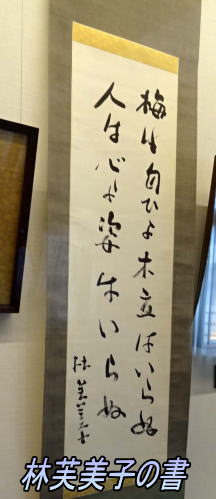 梅は匂ひよ木立はいらぬ
人は心よ姿はいらぬ
林芙美子書
林芙美子の書